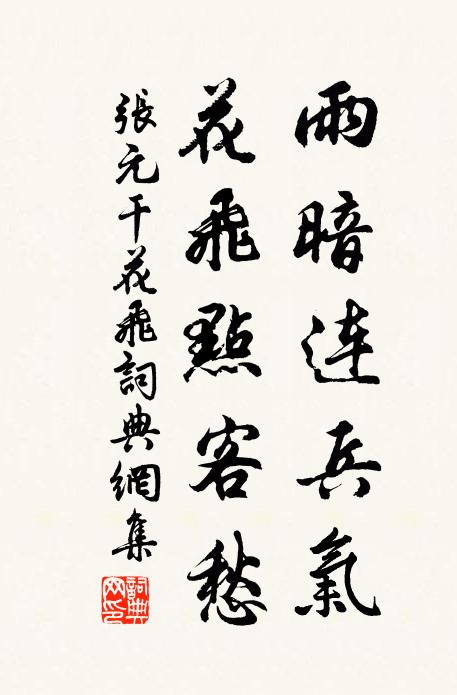 雨暗連兵氣
花飛點客愁
張元干花飛詞典網集
詞典
网印